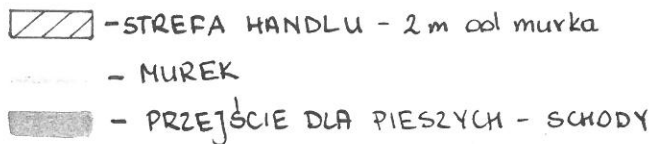 - STREFA HANDLU - 2 m od murka
- MUREK
- PRZEJŚCIE DLA PIESZYCH - SCHODY